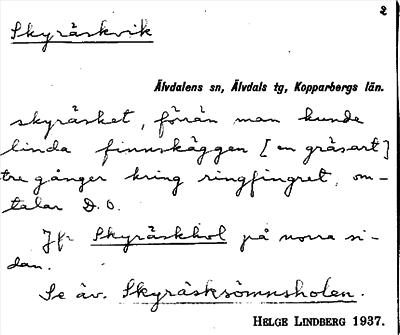 2
Skyräskvik
Älvdalens sn, Älvdals tg, Kopparbergs län.
skyräsket, förrän man kunde
linda finnskäggen [en gräsart]
tre gånger kring ringfingret, om-
talar D. O.
Jfr Skyräskhol på norra si-
dan.
Se äv. Skyräsksömnsholen.
HELGE LINDBERG 1937.